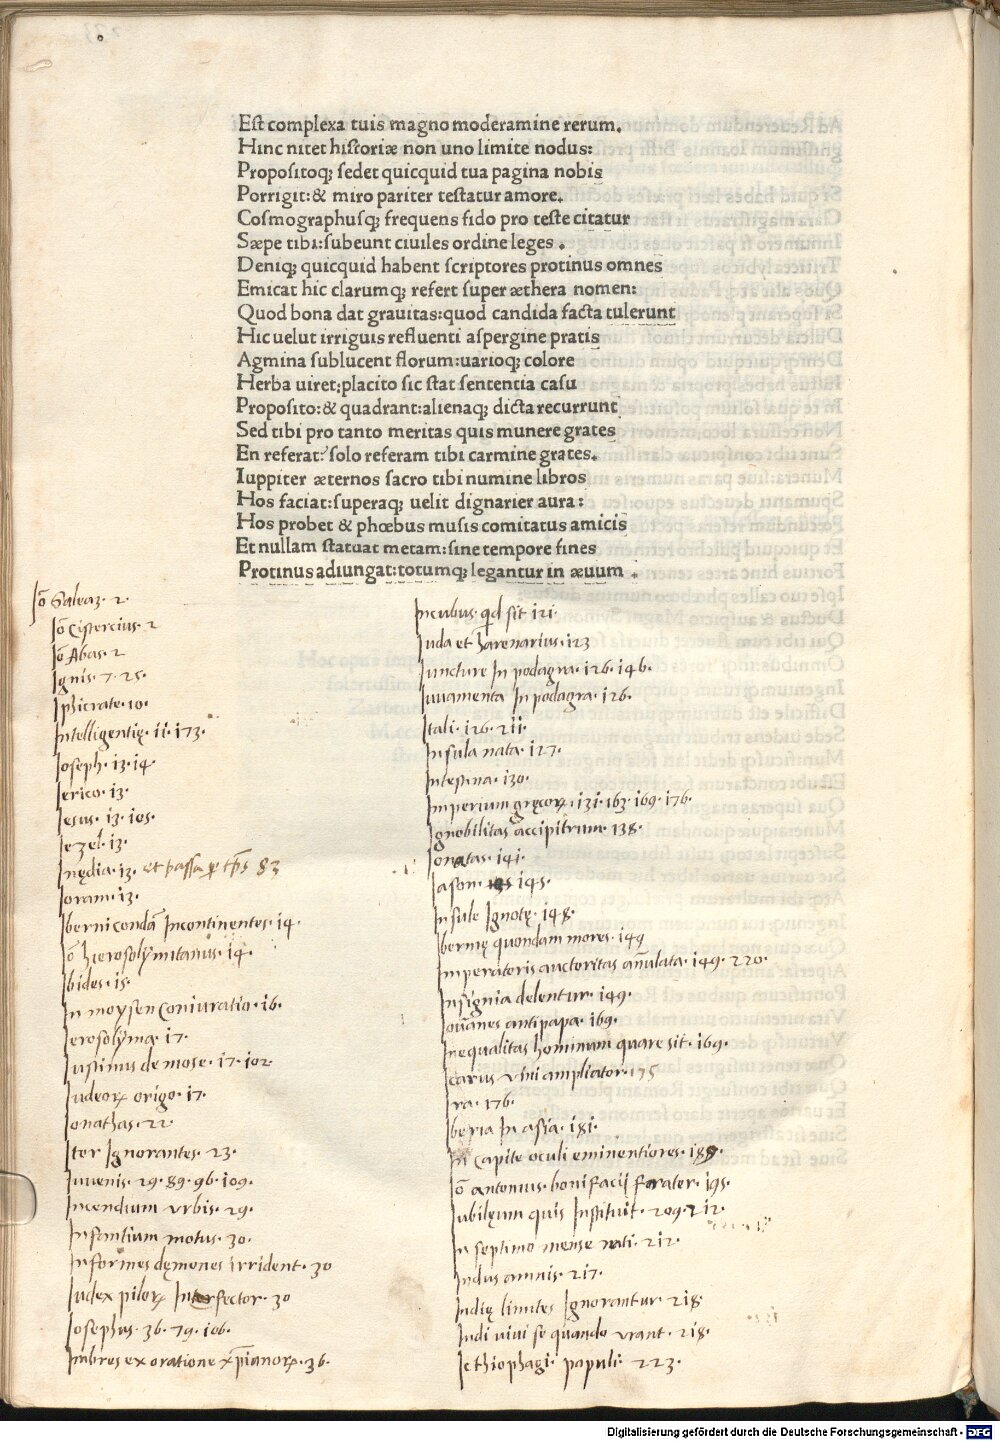 Est complexa tuis magno moderamine rerum.
Hinc nitet historiæ non uno limite nodus:
Propositoq; sedet quicquid tua pagina nobis
Porrigit:& miro pariter testatur amore.
Cosmographusq; frequens fido pro teste citatur
Sæpe tibi:subeunt ciuiles ordine leges.
Deniq; quicquid habent scriptores protinus omnes
Emicat hic clarumq; refert super æthera nomen:
Quod bona dat grauitas:quod candida facta tulerunt
Hic uelut irriguis refluenti aspergine pratis
Agmina sublucent florum:uarioq; colore
Herba uiret;placito sic stat sententia casu
Proposito:& quadrant:alienaq; dicta recurrunt
Sed tibi pro tanto meritas quis munere grates
En referat?solo referam tibi carmine grates.
Iuppiter æternos sacro tibi numine libros
Hos faciat:superaq; uelit dignarier aura:
Hos probet & phœbus musis comitatus amicis
Et nullam statuat metam:sine tempore fines
Protinus adiungat:totumq; legantur in æuum.
Iō Galeaz. 2.
Iō Cistercius. 2
Iō Abas. 2
Ignis. 7. 25.
Iphicrate. 10.
Intelligentię. 11. 173.
Ioseph. 13. 14.
Ierico. 13.
Iesus. 13. 105.
Iezel. 13.
Inędia. 13. et 83
Ioram. 13.
Iberni condā Incontinentes. 14.
Iō hierosolymitanus. 14.
Ibides. 15.
In moysen Coniuratio. 16.
Ierosolyma. 17.
Iustinus de mose. 17. 102
Iudeoꝝ origo. 17.
Ionathas. 22.
Iter Ignorantes. 23.
Iuvenis. 29. 89. 96. 109.
Incendium vrbis. 29.
Infantium motus. 30.
Informes dęmones irrident. 30
Iudex piloꝝ Interfector. 30
Iosephus. 36. 79. 106.
Imbres ex oratione xp̄ianoꝝ. 36.
Incubus. qd sit 121.
Iuda et 123
Iuncture In podagra. 126. 146.
Iuvamenta In podagra. 126.
Itali. 126. 211.
Insula nata. 127.
Intestina. 130.
Imperium gręcoꝝ. 131. 163. 169. 176.
Ignobilitas accipitrum. 138.
Ionatas. 141.
Iason. 145.
Insule Ignotę. 148.
Ibernię quondam mores. 149
Imperatoris auctoritas anulata. 149. 220.
Insignia delentur. 149.
Iohannes antipapa. 169.
Inequalitas hominum quare sit. 169.
Icarus vini ampliator. 175
Ira. 176.
Iberia In asia. 181.
In capite oculi eminentiores. 189.
Iō antonius. bonifacij frater. 195.
Iubilęum quis Instituit. 209. 212.
In septimo mense nati. 212.
Indus amnis. 217.
Indię limites Ignorantur. 218
Indi vivi se quando vrant. 218.
Icthiophagi populi. 223.
Digitalisierung gefördert durch die Deutsche Forschungsgemeinschaft - DFG